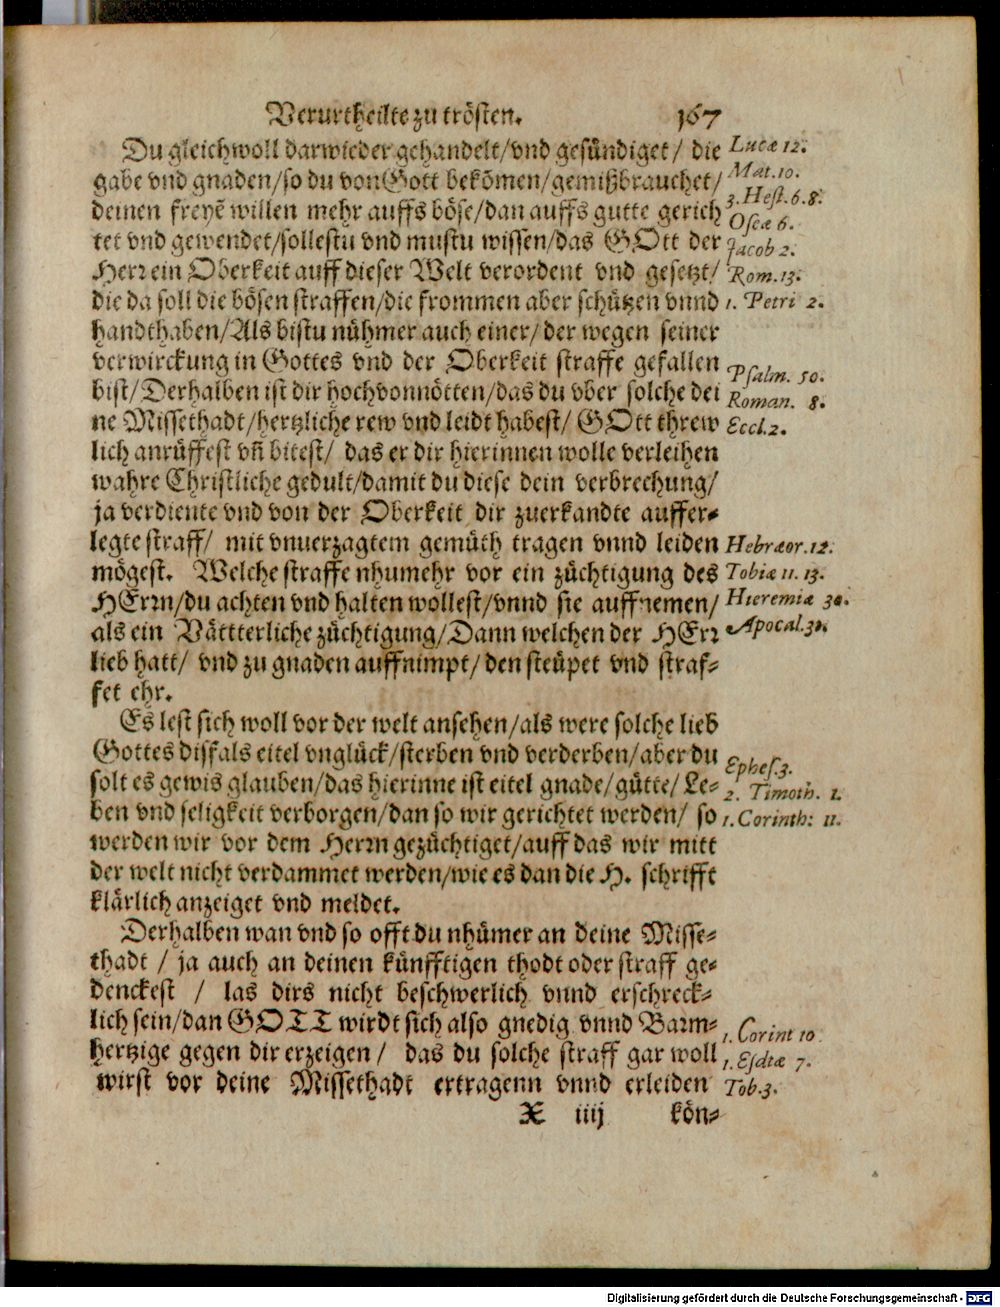 Verurtheilte zu trösten. 167
Du gleichwoll darwieder gehandelt/vnd gesündiget/ die Lucæ 12.
gabe vnd gnaden/so du von Gott bekōmen/gemißbrauchet/ Mat. 10.
deinen freyē willen mehr auffs böse/dan auffs gutte gerich 3. Hest. 6. 8.
tet vnd gewendet/sollestu vnd mustu wissen/das GOtt der Oseæ 6.
Jacob 2.
Herr ein Oberkeit auff dieser Welt verordent vnd gesetzt/ Rom. 13.
die da soll die bösen straffen/die frommen aber schützen vnnd 1. Petri 2.
handthaben/Als bistu nühmer auch einer/der wegen seiner
verwirckung in Gottes vnd der Oberkeit straffe gefallen
Psalm. 50.
bist/Derhalben ist dir hochvonnötten/das du vber solche dei Roman. 8.
ne Missethadt/hertzliche rew vnd leidt habest/ GOtt threw Eccl. 2.
lich anrüffest vn̄ bitest/ das er dir hierinnen wolle verleihen
wahre Christliche gedult/damit du diese dein verbrechung/
ja verdiente vnd von der Oberkeit dir zuerkandte auffer⸗
legte straff/ mit vnuerzagtem gemüth tragen vnnd leiden Hebræor. 12.
mögest. Welche straffe nhumehr vor ein züchtigung des Tobiæ 11. 13.
HErrn/du achten vnd halten wollest/vnnd sie auffnemen/ Hieremiæ 30.
als ein Vättterliche züchtigung/Dann welchen der HErr Apocal. 3.
lieb hatt/ vnd zu gnaden auffnimpt/den steüpet vnd straf⸗
fet ehr.
Es lest sich woll vor der welt ansehen/als were solche lieb
Gottes dissfals eitel vnglück/sterben vnd verderben/aber du
Ephes. 3.
solt es gewis glauben/das hierinne ist eitel gnade/gütte/ Le⸗ 2. Timoth. 1.
ben vnd seligkeit verborgen/dan so wir gerichtet werden/ so 1. Corinth: 11.
werden wir vor dem Herrn gezüchtiget/auff das wir mitt
der welt nicht verdammet werden/wie es dan die H. schrifft
klärlich anzeiget vnd meldet.
Derhalben wan vnd so offt du nhümer an deine Misse⸗
thadt / ja auch an deinen künfftigen thodt oder straff ge⸗
denckest / las dirs nicht beschwerlich vnnd erschreck⸗
lich sein/dan GOTT wirdt sich also gnedig vnnd Barm⸗ 1. Corint 10.
hertzige gegen dir erzeigen/ das du solche straff gar woll 1. Esdræ 7.
wirst vor deine Missethadt ertragenn vnnd erleiden Tob. 3.
X iiij kön⸗
Digitalisierung gefördert durch die Deutsche Forschungsgemeinschaft - DFG